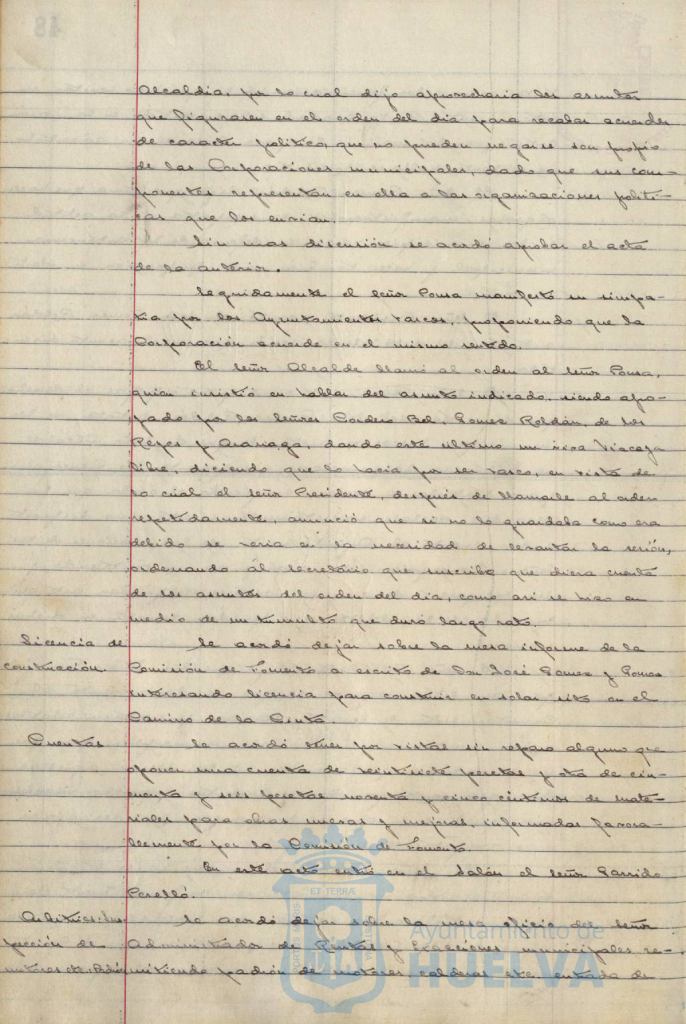 Alcaldia, por lo cual dijo aprovecharia los asuntos
que figurasen en el orden del dia para recabar acuerdos
de caracter politico, que no pueden negarse son propio
de las Corporaciones municipales, dado que sus com-
ponentes representan en ella a las organizaciones politi-
cas que los envian.
Sin mas discusión se acordó aprobar el acta
de la anterior.
Seguidamente el señor Ponsa manifestó su simpa-
tia por los Ayuntamientos vascos, proponiendo que la
Corporación acuerde en el mismo sentido.
El señor Alcalde llamó al orden al señor Ponsa,
quien insistió en hablar del asunto indicado, siendo apo-
yado por los señores Cordero Bel, Gomez Roldán, de los
Reyes y Aranaga, dando este ultimo un viva Viscaya
libre, diciendo que lo hacia por ser vasco, en vista de
lo cual el señor Presidente, después de llamarle al orden
repetidamente, anunció que si no lo guardaba como era
debido se veria en la necesidad de levantar la sesión,
ordenando al secretario que suscribe que diera cuenta
de los asuntos del orden del dia, como asi se hizo en
medio de un tumulto que duró largo rato.
Licencia de
construcción.
Se acordó dejar sobre la mesa informe de la
Comisión de Fomento a escrito de Don José Gomez y Gomez
interesando licencia para construir en solar sito en el
Camino de la Cinta.
Cuentas
Se acordó tener por vistas sin reparo alguno que
oponer una cuenta de veintisiete pesetas y otra de cin-
cuenta y seis pesetas noventa y cinco céntimos de mate-
riales para obras nuevas y mejoras, informadas favora-
blemente por la Comisión de Fomento.
En este acto entró en el Salón el señor Garrido
Perelló.
Arbitrios: Ins-
pección de
motores etc. Padrón
Se acordó dejar sobre la mesa oficio del señor
Administrador de Rentas y Exacciones municipales re-
mitiendo padrón de motores, calderas etc. entrada de
ET TERRÆ
Ayuntamiento de
HUELVA
48